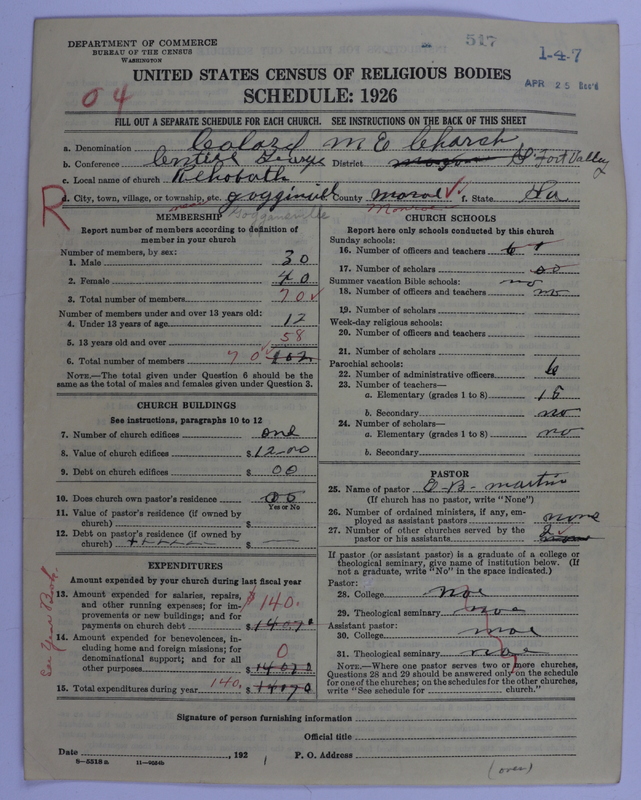 DEPARTMENT OF COMMERCE
BUREAU OF THE CENSUS
WASHINGTON
517
1-4-7
APR 25
04
UNITED STATES CENSUS OF RELIGIOUS BODIES
SCHEDULE: 1926
FILL OUT A SEPARATE SCHEDULE FOR EACH CHURCH. SEE INSTRUCTIONS ON THE BACK OF THIS SHEET
a. Denomination Colard M E Church
b. Conference District Ft Valley
c. Local name of church Rehoboth
R
d. City, town, village, or township, etc. County Monroe f. State Ga
MEMBERSHIP
Report number of members according to definition of member in your church
Number of members, by sex:
1. Male 30
2. Female 40
3. Total number of members 70
Number of members under and over 13 years old:
4. Under 13 years of age 12
5. 13 years old and over 58
6. Total number of members 70 102
NOTE.—The total given under Question 6 should be same as the total of males and females given under Question 3.
CHURCH BUILDINGS
See instructions, paragraphs 10 to 12
7. Number of church edifices one
8. Value of church edifices $1200
9. Debt on church edifices $ 00
10. Does church own pastor's residence
Yes or No
11. Value of pastor's residence (if owned by church) $
12. Debt on pastor's residence (if owned by church) $
EXPENDITURES
Amount expended by your church during last fiscal year
See Year Book.
13. Amount expended for salaries, repairs, and other running expenses; for improvements or new buildings; and for payments on church debt $140.
14. Amount expended for benevolences, including home and foreign missions; for denominational support; and for all other purposes 0
15. Total expenditures during year 140. $
CHURCH SCHOOLS
Report here only schools conducted by this church
Sunday schools:
16. Number of officers and teachers
17. Number of scholars
Summer vacation Bible schools: no
18. Number of officers and teachers no
19. Number of scholars
Week-day religious schools:
20. Number of officers and teachers
21. Number of scholars
Parochial schools:
22. Number of administrative officers 6
23. Number of teachers—
a. Elementary (grades 1 to 8) 15
b. Secondary no
24. Number of scholars—
a. Elementary (grades 1 to 8) no
b. Secondary
PASTOR
25. Name of pastor O B- martin
(If church has no pastor, write "None")
26. Number of ordained ministers, if any, employed as assistant pastors none
27. Number of other churches served by the pastor or his assistants
If pastor (or assistant pastor) is a graduate of a college or theological seminary, give name of institution below. (If not a graduate, write "No" in the space indicated.)
Pastor:
28. College noe
29. Theological seminary noe
Assistant pastor:
30. College noe
31. Theological seminary noe
NOTE.—Where one pastor serves two or more churches, Questions 28 and 29 should be answered only on the schedule for one of the churches; on the schedules for the other churches, write "See schedule for church."
Signature of person furnishing information
Official title
Date , 192 P. O. Address
8—5518a 11—9054b
(over)